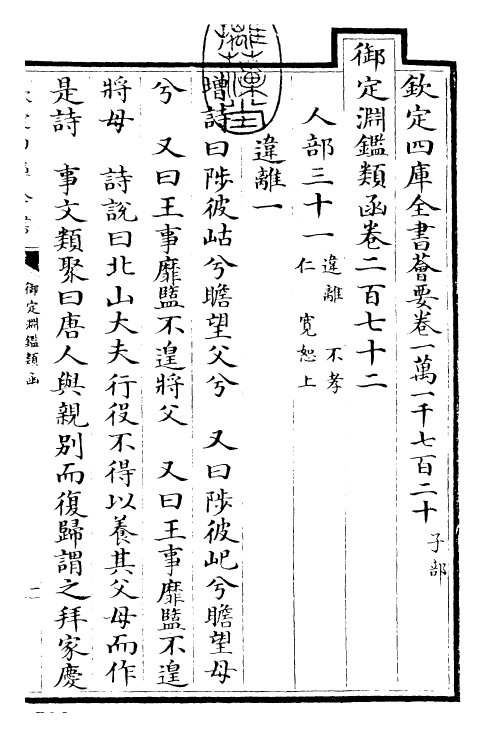 欽定四庫全書薈要卷一萬一千七百二十 子部
御定淵鑑類函卷二百七十二
人部三十一 違離 不孝 仁 寛恕上
違離一
詩曰陟彼岵兮瞻望父兮 又曰陟彼屺兮瞻望母
兮 又曰王事靡盬不遑將父 又曰王事靡盬不遑
將母 詩說曰北山大夫行役不得以養其父母而作
是詩 事文類聚曰唐人與親别而復歸謂之拜家慶
御定淵鑑類函